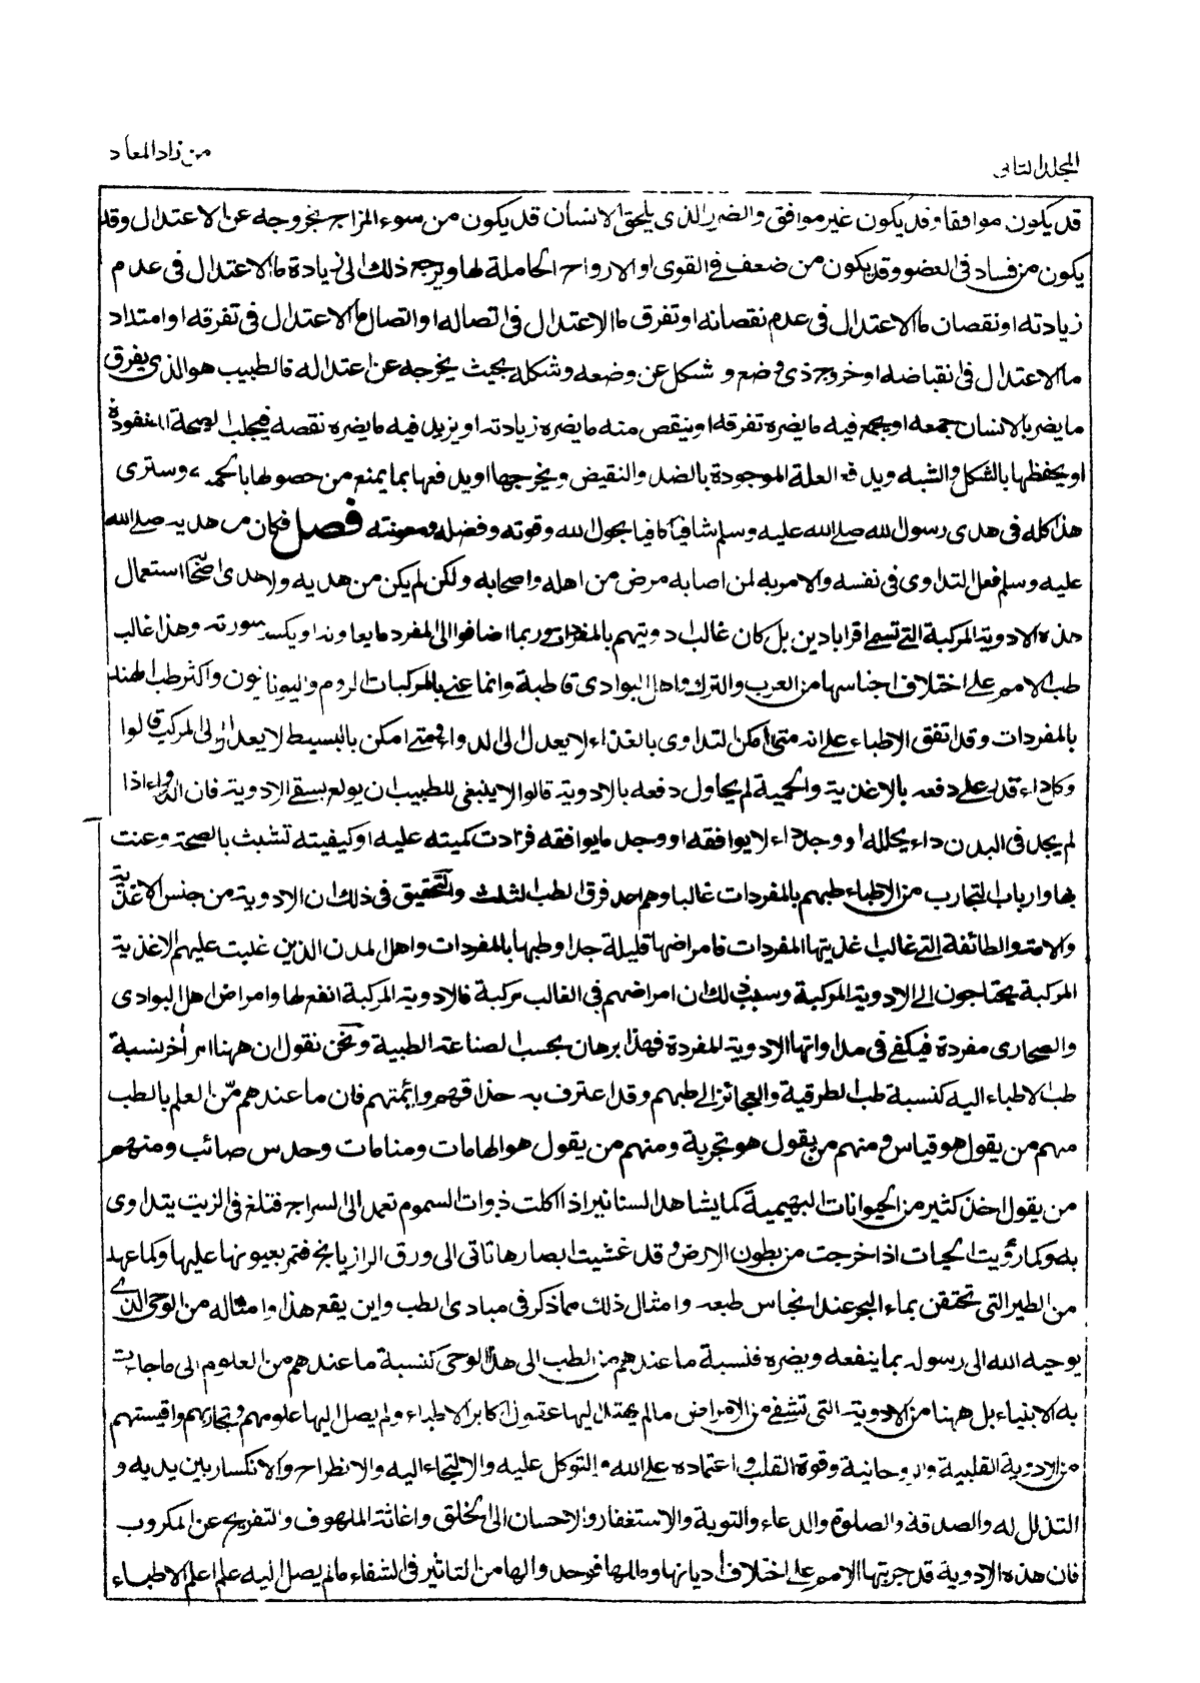 المجلد الثانى
من زاد المعاد
قد يكون موافقا وقد يكون غير موافق والضرر الذى يلحق الانسان قد يكون من سوء المزاج بخروجه عن الاعتدال وقد
يكون من فساد فى العضو وقد يكون من ضعف فى القوى او الارواح الحاملة لها ويرجع ذلك الى زيادة ما الاعتدال فى عدم
زيادته او نقصان ما الاعتدال فى عدم نقصانه او تفرق ما الاعتدال فى اتصاله او اتصال ما الاعتدال فى تفرقه او امتداد
ما الاعتدال فى انقباضه او خروج ذى وضع و شكل عن وضعه وشكله بحيث يخرجه عن اعتداله فالطبيب هو الذى يفرق
ما يضر بالانسان جمعه او يجمع فيه ما يضره تفرقه او ينقص منه ما يضره زيادته او يزيد فيه ما يضره نقصه فيجلب الصحة المفقودة
او يحفظها بالشكل والشبه ويدفع العلة الموجودة بالضد والنقيض ويخرجها او يدفعها بما يمنع من حصولها بالحمية وسترى
هذا كله فى هدى رسول الله صلى الله عليه وسلم شافيا كافيا بحول الله وقوته وفضله ومعونته فصل فكان من هديه صلى الله
عليه وسلم فعل التداوى فى نفسه والامر به لمن اصابه مرض من اهله واصحابه ولكن لم يكن من هديه ولا هدى اصحابه استعمال
هذه الادوية المركبة التى تسمى اقرابادين بل كان غالب ادويتهم بالمفردات وربما اضافوا الى المفرد ما يعاونه او يكسر سورته وهذا غالب
طب الامم على اختلاف اجناسها من العرب والترك واهل البوادى قاطبة وانما عنى بالمركبات الروم واليونانيون واكثر طب الهند
بالمفردات وقد اتفق الاطباء على انه متى امكن التداوى بالغذاء لا يعدل الى الدواء ومتى امكن بالبسيط لا يعدل الى المركب قالوا
وكل داء قدر على دفعه بالاغذية والحمية لم يحاول دفعه بالادوية قالوا ولا ينبغى للطبيب ان يولع بسقى الادوية فان الدواء اذا
لم يجد فى البدن داء يحلله او وجد داء لا يوافقه او وجد ما يوافقه فزادت كميته عليه او كيفيته تشبث بالصحة وعبث
بها وارباب التجارب من الاطباء طبهم بالمفردات غالبا وهم احد فرق الطب الثلث والتحقيق فى ذلك ان الادوية من جنس الاغذية
والامة والطائفة التى غالب اغذيتها المفردات فامراضها قليلة جدا وطبها بالمفردات واهل المدن الذين غلبت عليهم الاغذية
المركبة يحتاجون الى الادوية المركبة وسبب ذلك ان امراضهم فى الغالب مركبة فالادوية المركبة انفع لها وامراض اهل البوادى
والصحارى مفردة فيكفى فى مداواتها الادوية المفردة فهذا برهان بحسب الصناعة الطبية ونحن نقول ان ههنا امرا آخر نسبة
طب الاطباء اليه كنسبة طب الطرقية والعجائز الى طبهم وقد اعترف به حذاقهم وائمتهم فان ما عندهم من العلم بالطب
منهم من يقول هو قياس ومنهم من يقول هو تجربة ومنهم من يقول هو الهامات ومنامات وحدس صائب ومنهم
من يقول اخذ كثير من الحيوانات البهيمية كما يشاهد السنانير اذا اكلت ذوات السموم تعمد الى السراج فتلغ فى الزيت يتداوى
به وكما رؤيت الحيات اذا خرجت من بطون الارض وقد غشيت ابصارها تاتى الى ورق الرازيانج فتمر بعيونها عليها وكما عهد
من الطير التى تحتقن بماء البحر عند انحباس طبعه وامثال ذلك مما ذكر فى مبادى الطب واين يقع هذا وامثاله من الوحى الذى
يوحيه الله الى رسوله بما ينفعه ويضره فنسبة ما عندهم من الطب الى هذا الوحى كنسبة ما عندهم من العلوم الى ما جاءت
به الانبياء بل ههنا من الادوية التى تشفى من الامراض ما لم يهتد اليها عقول اكابر الاطباء ولم يصل اليها علومهم وتجاربهم واقيستهم
من الادوية القلبية والروحانية وقوة القلب واعتماده على الله والتوكل عليه والالتجاء اليه والانطراح والانكسار بين يديه و
التذلل له والصدقة والصلوة والدعاء والتوبة والاستغفار والاحسان الى الخلق واغاثة الملهوف والتفريج عن المكروب
فان هذه الادوية قد جربتها الامم على اختلاف اديانها ومللها فوجدوا لها من التاثير فى الشفاء ما لم يصل اليه علم اعلم الاطباء